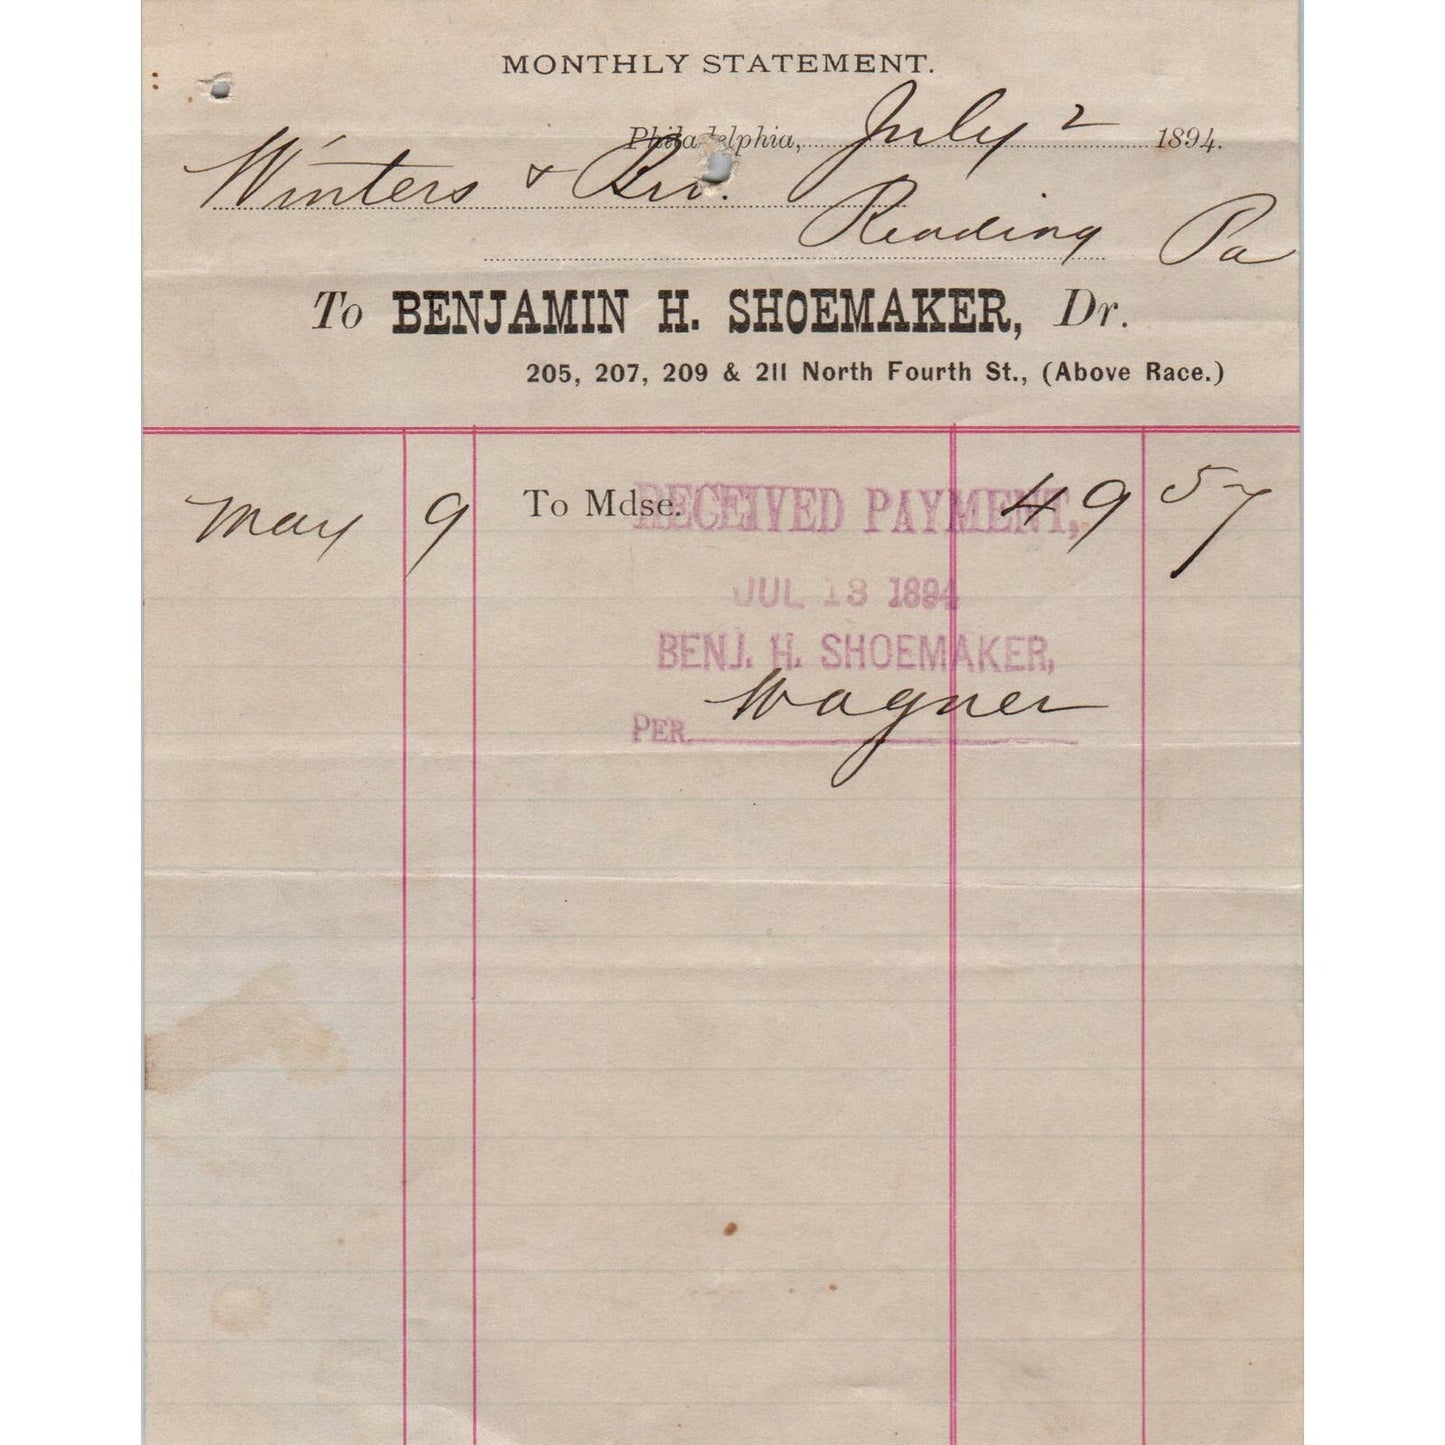 MONTHLY STATEMENT.
Philadelphia, July 2 1894.
Winters & Bro.
Reading Pa
To BENJAMIN H. SHOEMAKER, Dr.
205, 207, 209 & 211 North Fourth St., (Above Race.)
May 9 To Mdse. 49 57
RECEIVED PAYMENT,
JUL 13 1894
BENJ. H. SHOEMAKER,
PER. Wagner